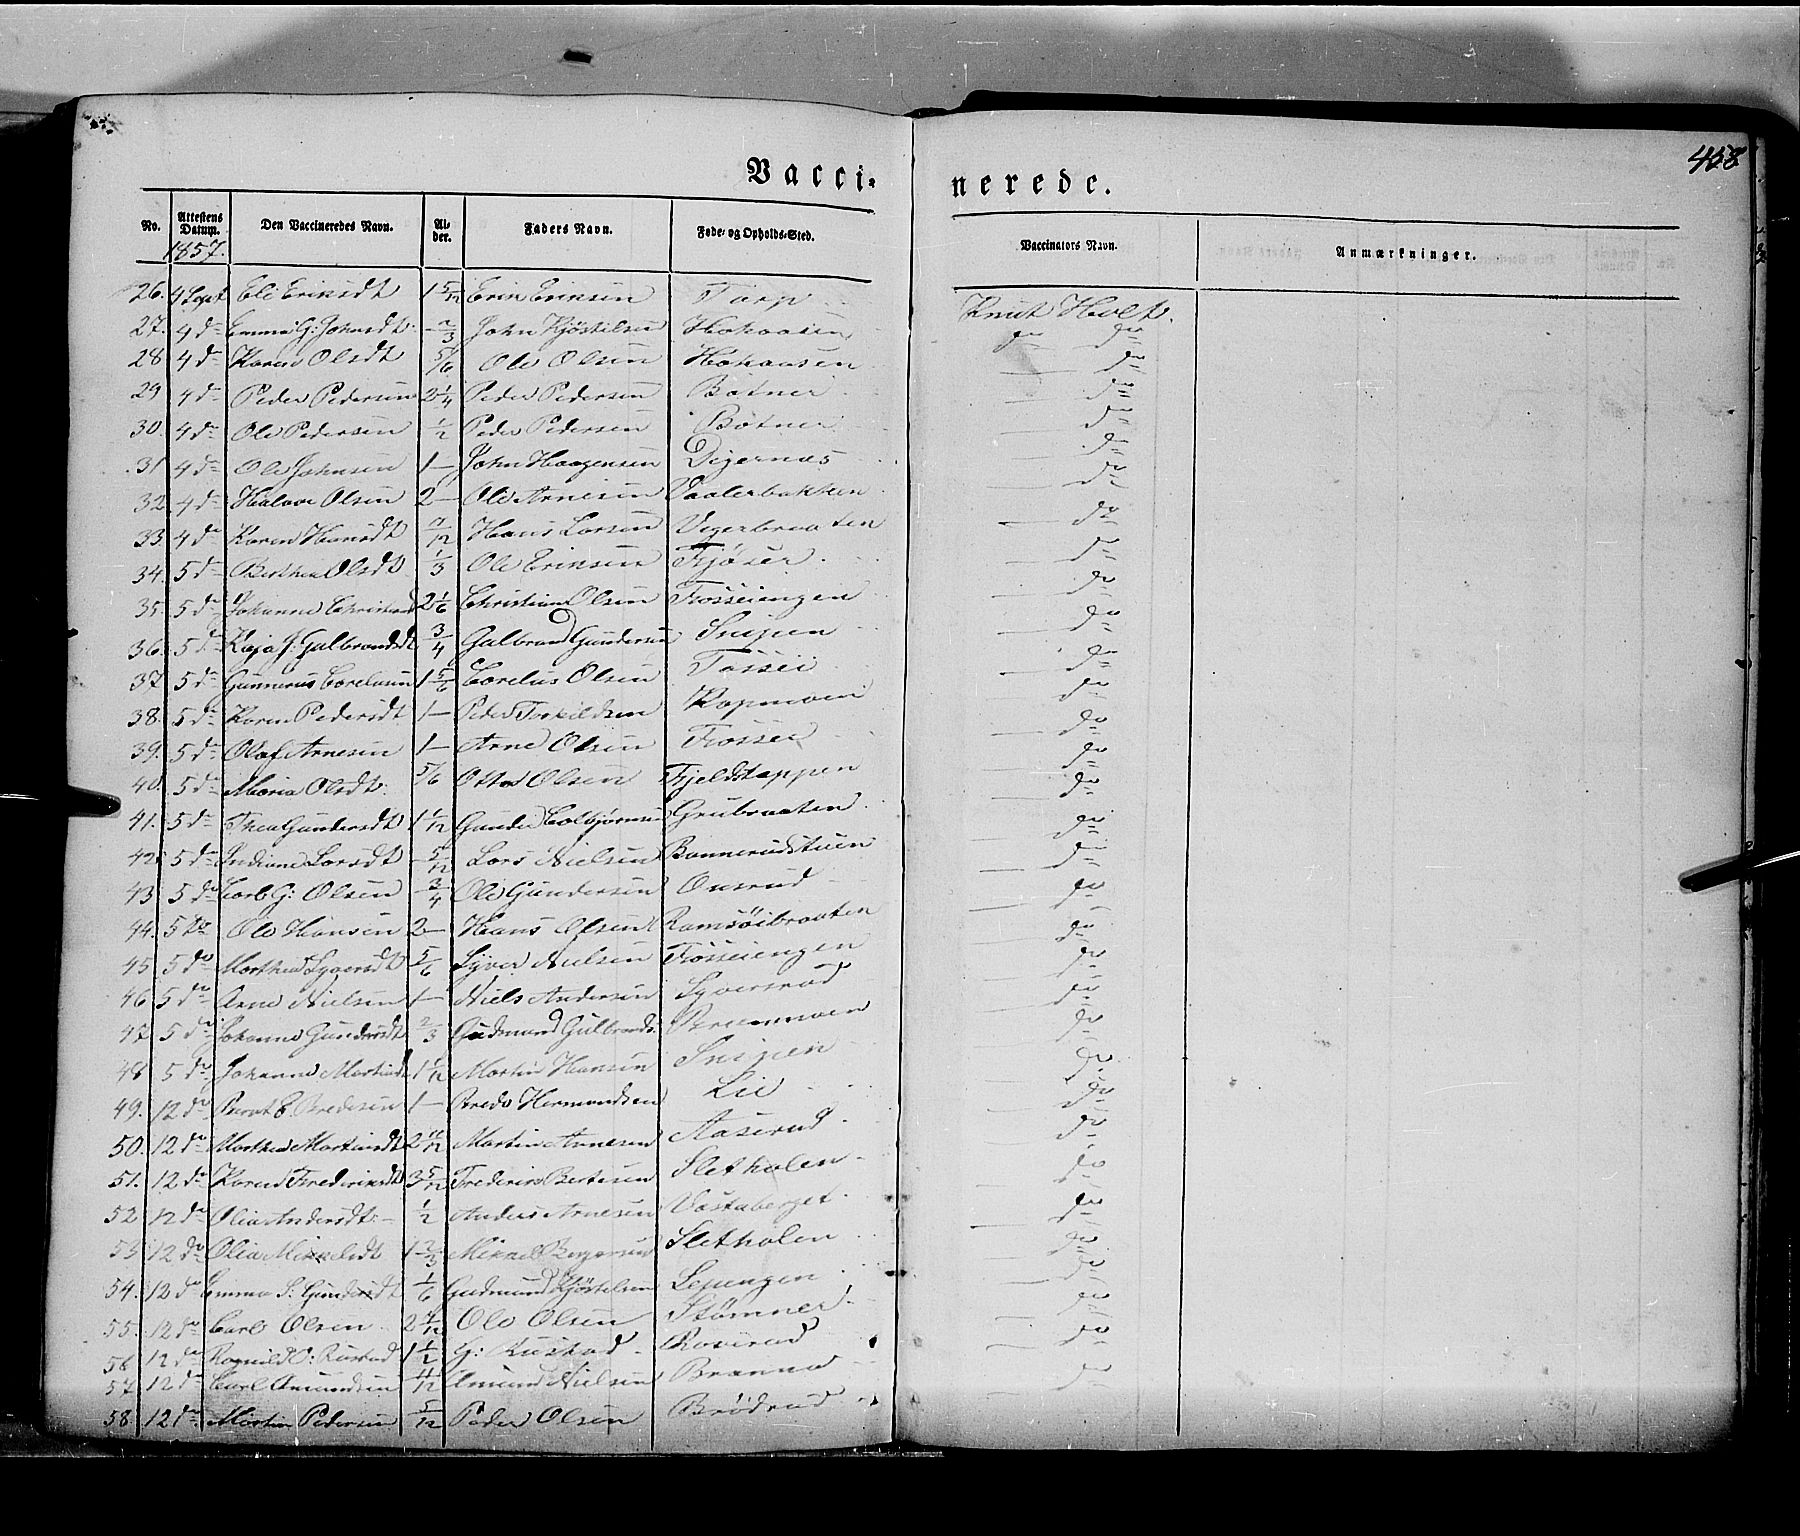 458
Vacci- nerede.
No. Attestens Datum. Den Vaccineredes Navn. Al- der. Faders Navn. Føde- og Opholds-Sted. Vaccinators Navn. Anmærkninger.
1857.
26. 4 Sept Eli Eriksdt 1 5/12 Erik Eriksen Torp Knut Holt.
27. 4 do Emma G: Johnsdt. - 2/3 John Kjöstelsen Hokaasen do do
28 4 do Karen Olsdt 5/6 Ole Olsen Hokaasen — do
29 4 do Peder Pedersen 2 1/4 Peder Pedersen Botner — do
30. 4 do Ole Pedersen 1/2 Peder Pedersen Botner — do
31 4 do Ole Johnsen 1 — John Haagensen Digernæs — do
32. 4 do Halvor Olsen 2 — Ole Arnesen Vaalerbakken — do
33. 4 do Karen Hansdt 7/12 Hans Larsen Vegerbraaten — do
34. 5 do Berthea Olsdt 1/3 Ole Eriksen Fjöser — do
35. 5 do Johanne Christiansd 2 1/6 Christian Olsen Fosseiengen — do
36. 5 do Kaja J. Gulbrandsdt 3/4 Gulbrand Gundersen Snipen — do
37 5 do Gunnerus Corelusen 1 5/6 Corelius Olsen Fossei — do
38. 5 do Karen Pedersdt 1 — Peder Torkildsen Kopmoen — do
39. 5 do Olaf Arnesen 1 — Arne Olsen Fossei — do
40. 5 do Maria Olsdt. 5/6 Otto Olsen Fjeldstappen — do
41. 5 do Thea Gundersdt 1 1/12 Gunder Colbjørnsen Grubraaten — do
42. 5 do Indiane Larsdt - 5/12 Lars Nielsen Bonnerudstuen — do
43 5 do Carl G: Olsen - 3/4 Ole Gundersen Onsrud — do
44. 5 do Ole Hansen 2 — Hans Olsen Ramsöibraaten — do
45 5 do Marthea Syversdt 5/6 Syver Nielsen Fosseiengen — do
46 5 do Arne Nielsen 1 — Niels Andersen Syversrud — do
47 5 do Johanne Gundersdt 2/3 Gudmund Gulbrands. — do
48 5 do Johanne Martinsdt 1 1/12 Martin Hansen Snipen — do
49. 12 do Bernt C. Bredesen 1 — Brede Hermundsen Lie — do
50. 12 do Marthea Martinsdt 2 11/12 Martin Arnesen Aaserud — do
51. 12 do Karen Frederiksdt 3 5/12 Frederik Bertesen Sletholen — do
52 12 do Olia Andersdt. 1/2 Anders Arnesen Vestaberget — do
53 12 do Olia Mikkelsdt 1 2/3 Mikkel Borgersen Sletholen — do
54. 12 do Emma S: Gundersdt 1/6 Gudmund Kjöstelsen Lepengen — do
55. 12 do Carl Olsen 2 Ole Olsen Stömner — do
56 12 do Ragnild O: Rustad 1 1/2 G: Rustad — do
57. 12 do Carl Amundsen 11/12 Amund Nielsen Branna — do
58. 12 do Martin Pedersen 5/12 Peder Olsen Brödrud